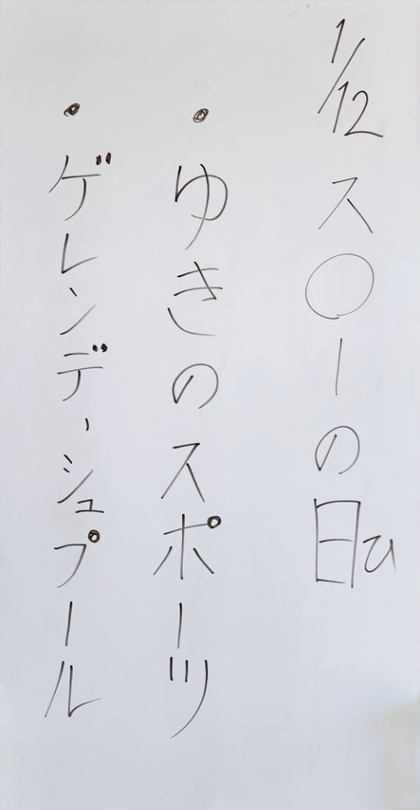 1/12 ス〇ーの日ひ
・ゆきのスポーツ
・ゲレンデ、シュプール